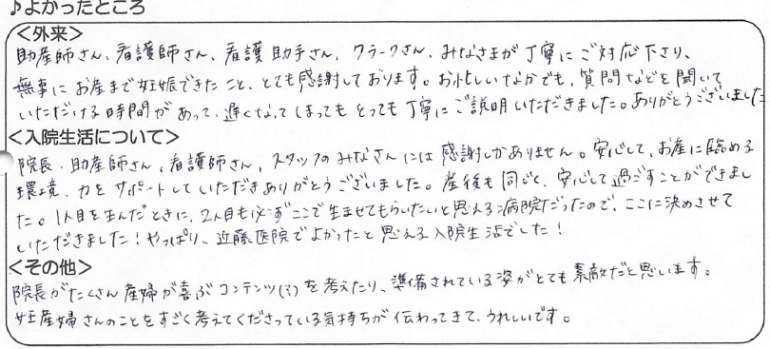 ♪よかったところ
<外来>
助産師さん、看護師さん、看護助手さん、クラークさん、みなさまが丁寧にご対応下さり、
無事にお産まで妊娠できたこと、とても感謝しております。お忙しいなかでも、質問などを聞いて
いただける時間があって、遅くなってしまってもとっても丁寧にご説明いただきました。ありがとうございました
<入院生活について>
院長、助産師さん、看護師さん、スタッフのみなさんには感謝しかありません。安心して、お産に臨める
環境、力をサポートしていただきありがとうございました。産後も同じく、安心して過ごすことができまし
た。1人目を生んだときに、2人目も必ずここで生ませてもらいたいと思える病院だったので、ここに決めさせて
いただきました!やっぱり、近藤医院でよかったと思える入院生活でした!
<その他>
院長がたくさん産婦が喜ぶコンテンツ(?)を考えたり、準備されている姿がとても素敵だと思います。
妊産婦さんのことをすごく考えてくださっている気持ちが伝わってきて、うれしいです。